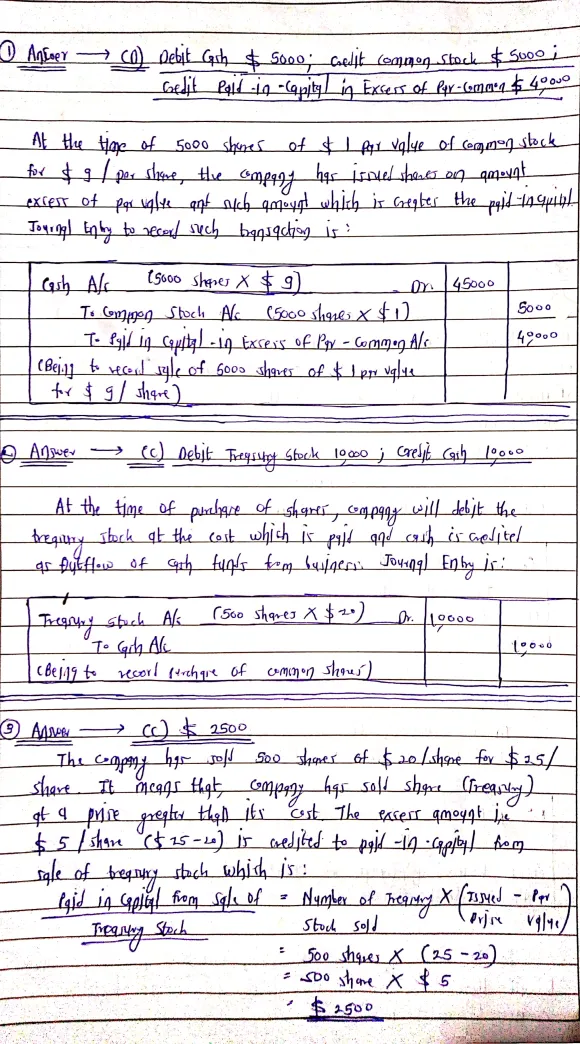 ① Answer → (A) Debit Cash $ 5000; Credit Common Stock $ 5000;
Credit Paid-in-Capital in Excess of Par-Common $ 40000
At the time of 5000 shares of $ 1 par value of common stock
for $ 9 / per share, the company has issued shares on amount
excess of par value and such amount which is greater the paid-in capital
Journal Entry to record such transaction is:
Cash A/c (5000 shares X $ 9) Dr. 45000
To Common Stock A/c (5000 shares X $ 1) 5000
To Paid in Capital-in Excess of Par-Common A/c 40000
(Being to record sale of 5000 shares of $ 1 par value
for $ 9 / share)
② Answer → (C) Debit Treasury Stock 10,000; Credit Cash 10,000
At the time of purchase of shares, company will debit the
treasury stock at the cost which is paid and cash is credited
as outflow of cash funds from business. Journal Entry is:
Treasury Stock A/c (500 shares X $ 20) Dr. 10000
To Cash A/c 10,000
(Being to record purchase of common shares)
③ Answer → (C) $ 2500
The company has sold 500 shares of $ 20/share for $ 25/
share. It means that, company has sold share (Treasury)
at a price greater than its cost. The excess amount i.e
$ 5 / share ($ 25 - 20) is credited to paid-in-capital from
sale of treasury stock which is:
Paid in Capital from Sale of = Number of Treasury X (Issued - Par
Treasury Stock Stock sold Price Value)
= 500 shares X (25 - 20)
= 500 share X $ 5
= $ 2500